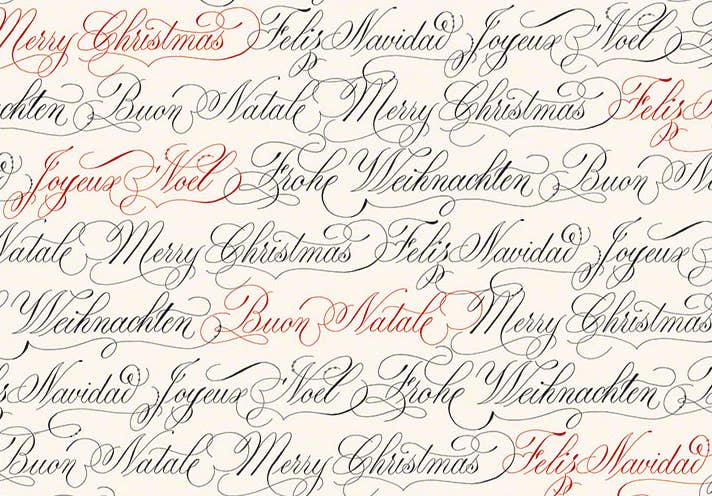 Merry Christmas Feliz Navidad Joyeux Noël
chten Buon Natale Merry Christmas Feliz
Joyeux Noël Frohe Weihnachten Buon
Natale Merry Christmas Feliz Navidad Joyeux
Weihnachten Buon Natale Merry Christmas
Navidad Joyeux Noël Frohe Weihnachten
Buon Natale Merry Christmas Feliz Navidad